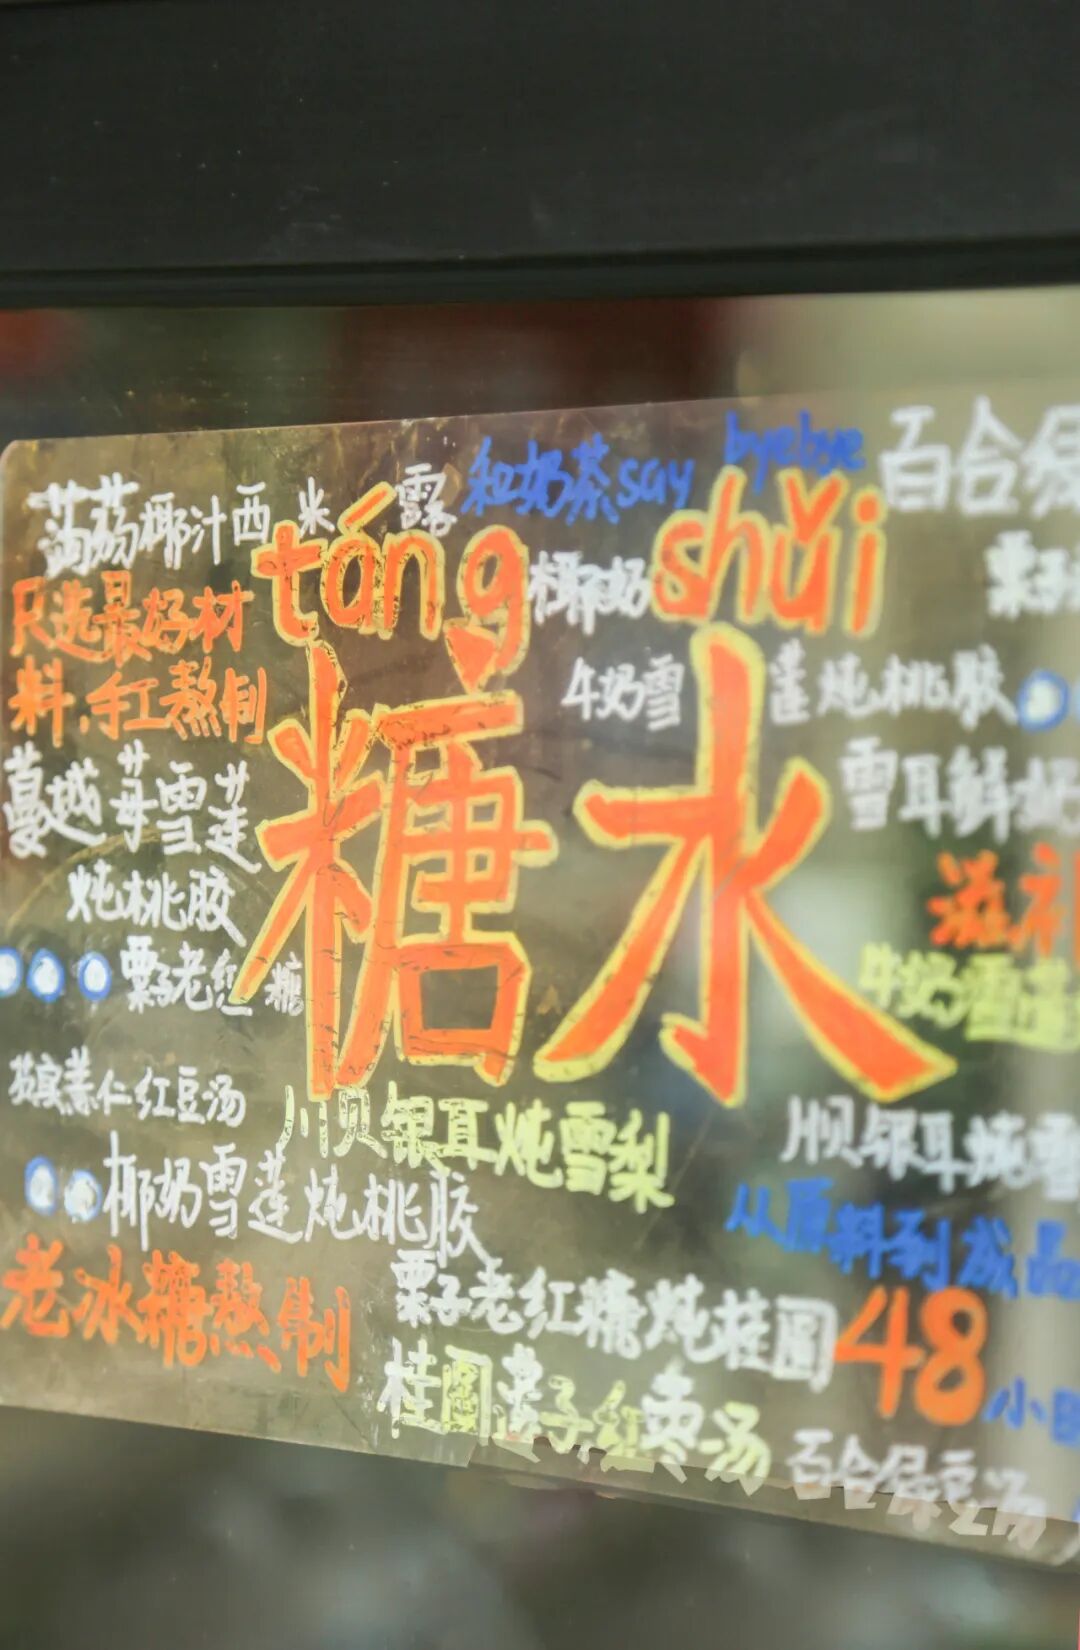 蒟蒻椰汁西米露
和奶茶say byebye
百合绿
táng shuǐ
糖水
椰奶
栗子
只选最好材
料,手工熬制
牛奶雪莲炖桃胶
蔓越莓雪莲
炖桃胶
雪耳鲜奶
滋补
栗子老红糖
牛奶雪莲
薏仁红豆汤
川贝银耳炖雪梨
川贝银耳炖雪
椰奶雪莲炖桃胶
从原料到成品
48小时
老冰糖熬制
栗子老红糖炖桂圆
桂圆莲子红枣汤
百合绿豆汤